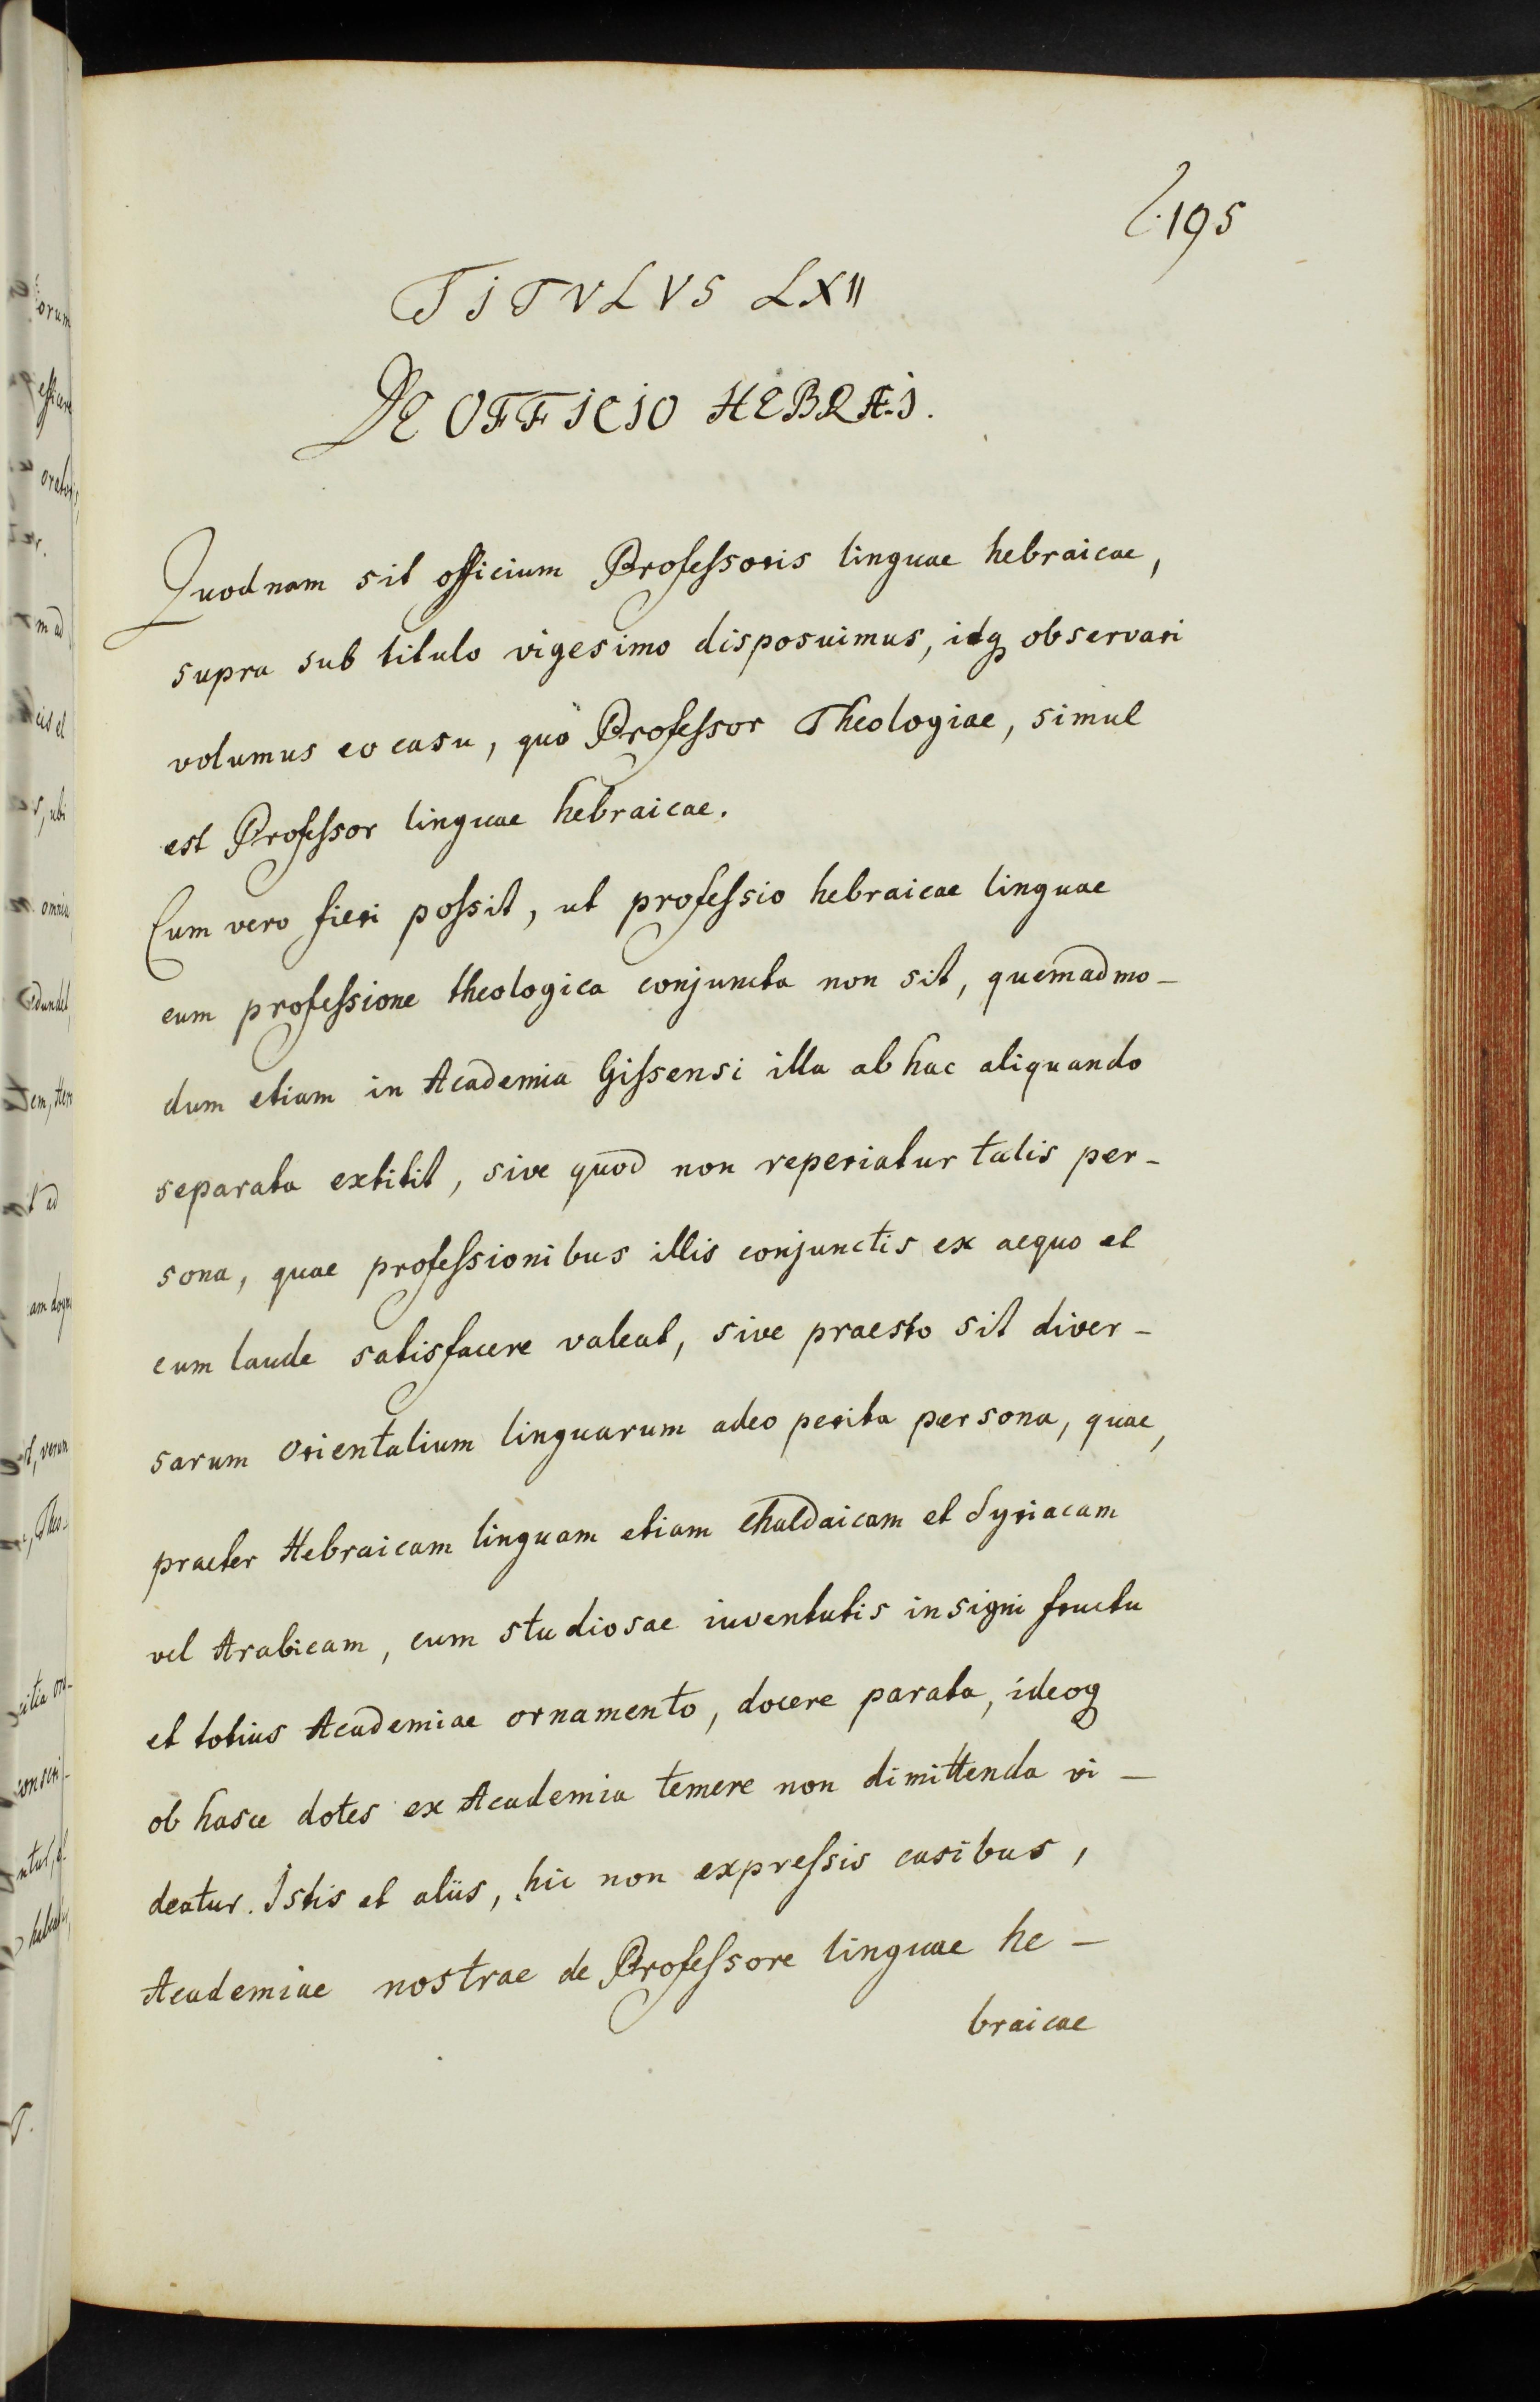 195
TITVLVS LXII
DE OFFICIO HEBRÆI.
Quodnam sit officium Professoris linguae hebraicae,
supra sub titulo vigesimo disposuimus, idq observari
volumus eo casu, quo Professor Theologiae, simul
est Professor linguae hebraicae.
Cum vero fieri possit, ut professio hebraicae linguae
cum professione theologica conjuncta non sit, quemadmo-
dum etiam in Academia Gissensi illa ab hac aliquando
separata extitit, sive quod non reperiatur talis per-
sona, quae professionibus illis conjunctis ex aequo et
cum laude satisfacere valeat, sive praesto sit diver-
sarum Orientalium linguarum adeo perita persona, quae,
praeter Hebraicam linguam etiam Chaldaicam et Syriacam
vel Arabicam, cum studiosae iuventutis insigni fructu
et totius Academiae ornamento, docere parata, ideoq
ob hasce dotes ex Academia temere non dimittenda vi-
deatur. Istis et aliis, hic non expressis casibus,
Academiae nostrae de Professore linguae he-
braicae